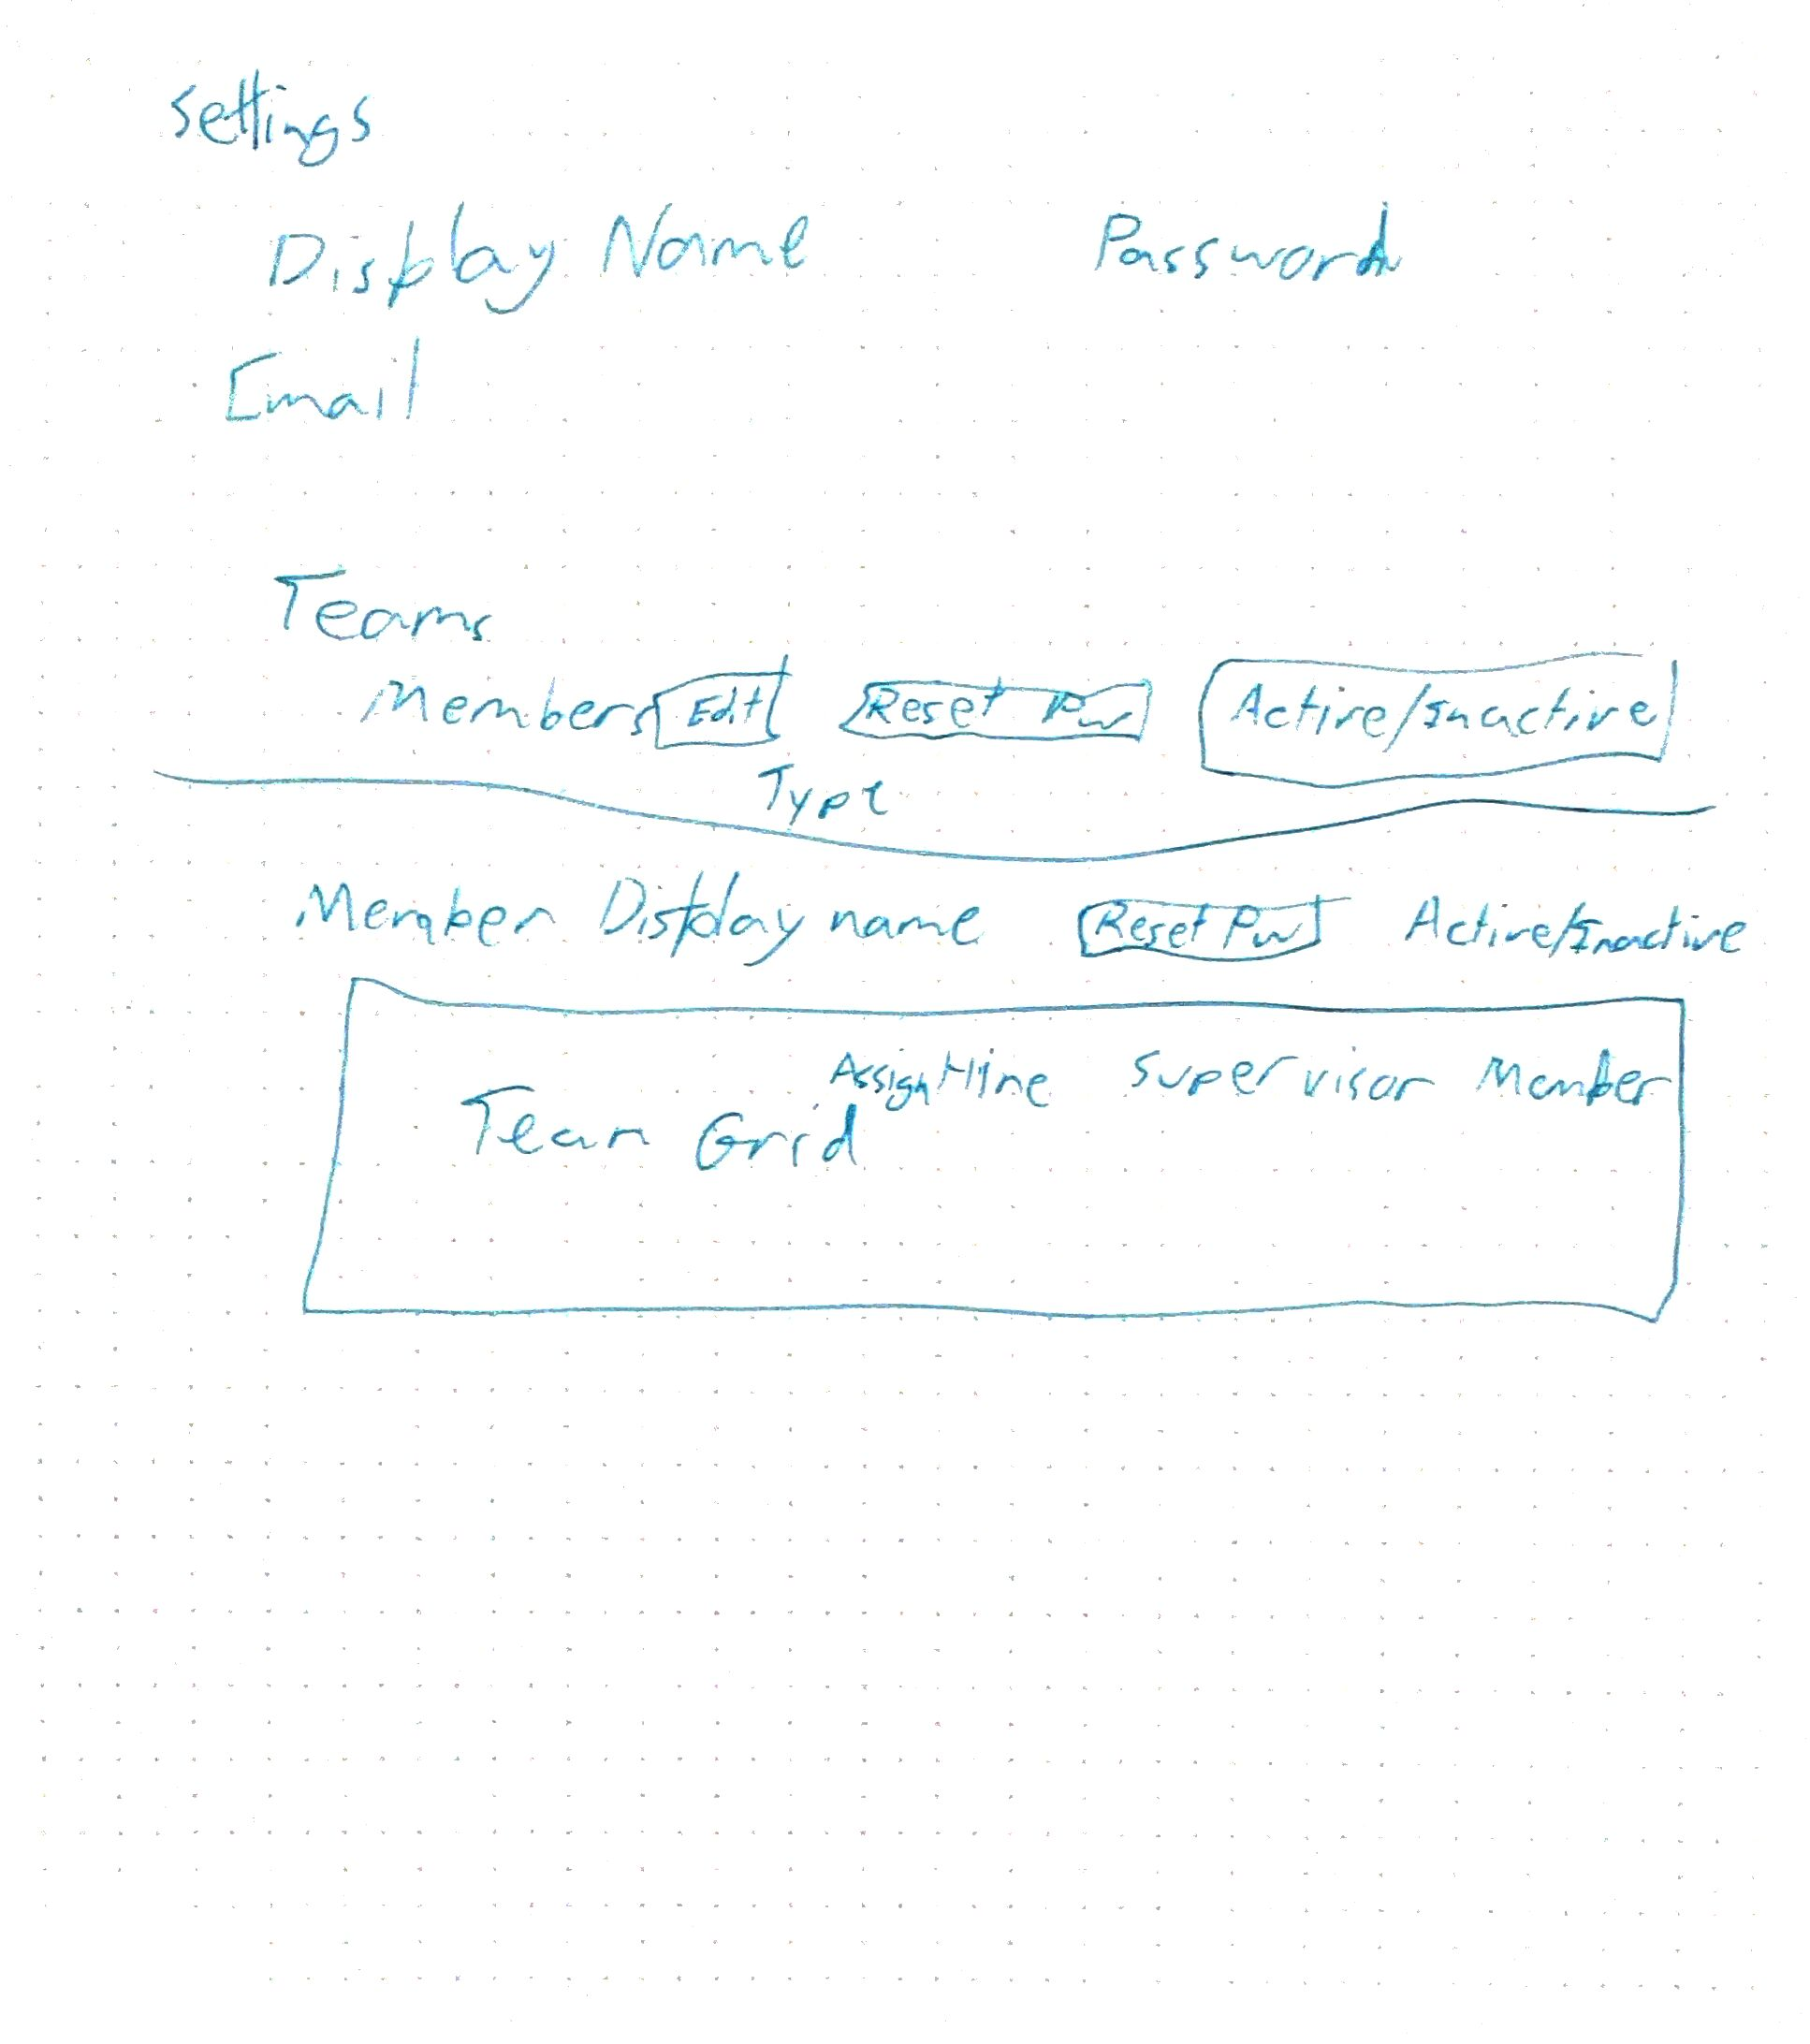 Settings
Display Name Password
Email
Teams
Members Edit Reset Pw Active/Inactive
Type
Member Display name Reset Pw Active/Inactive
Supervisor Member
Team Grid